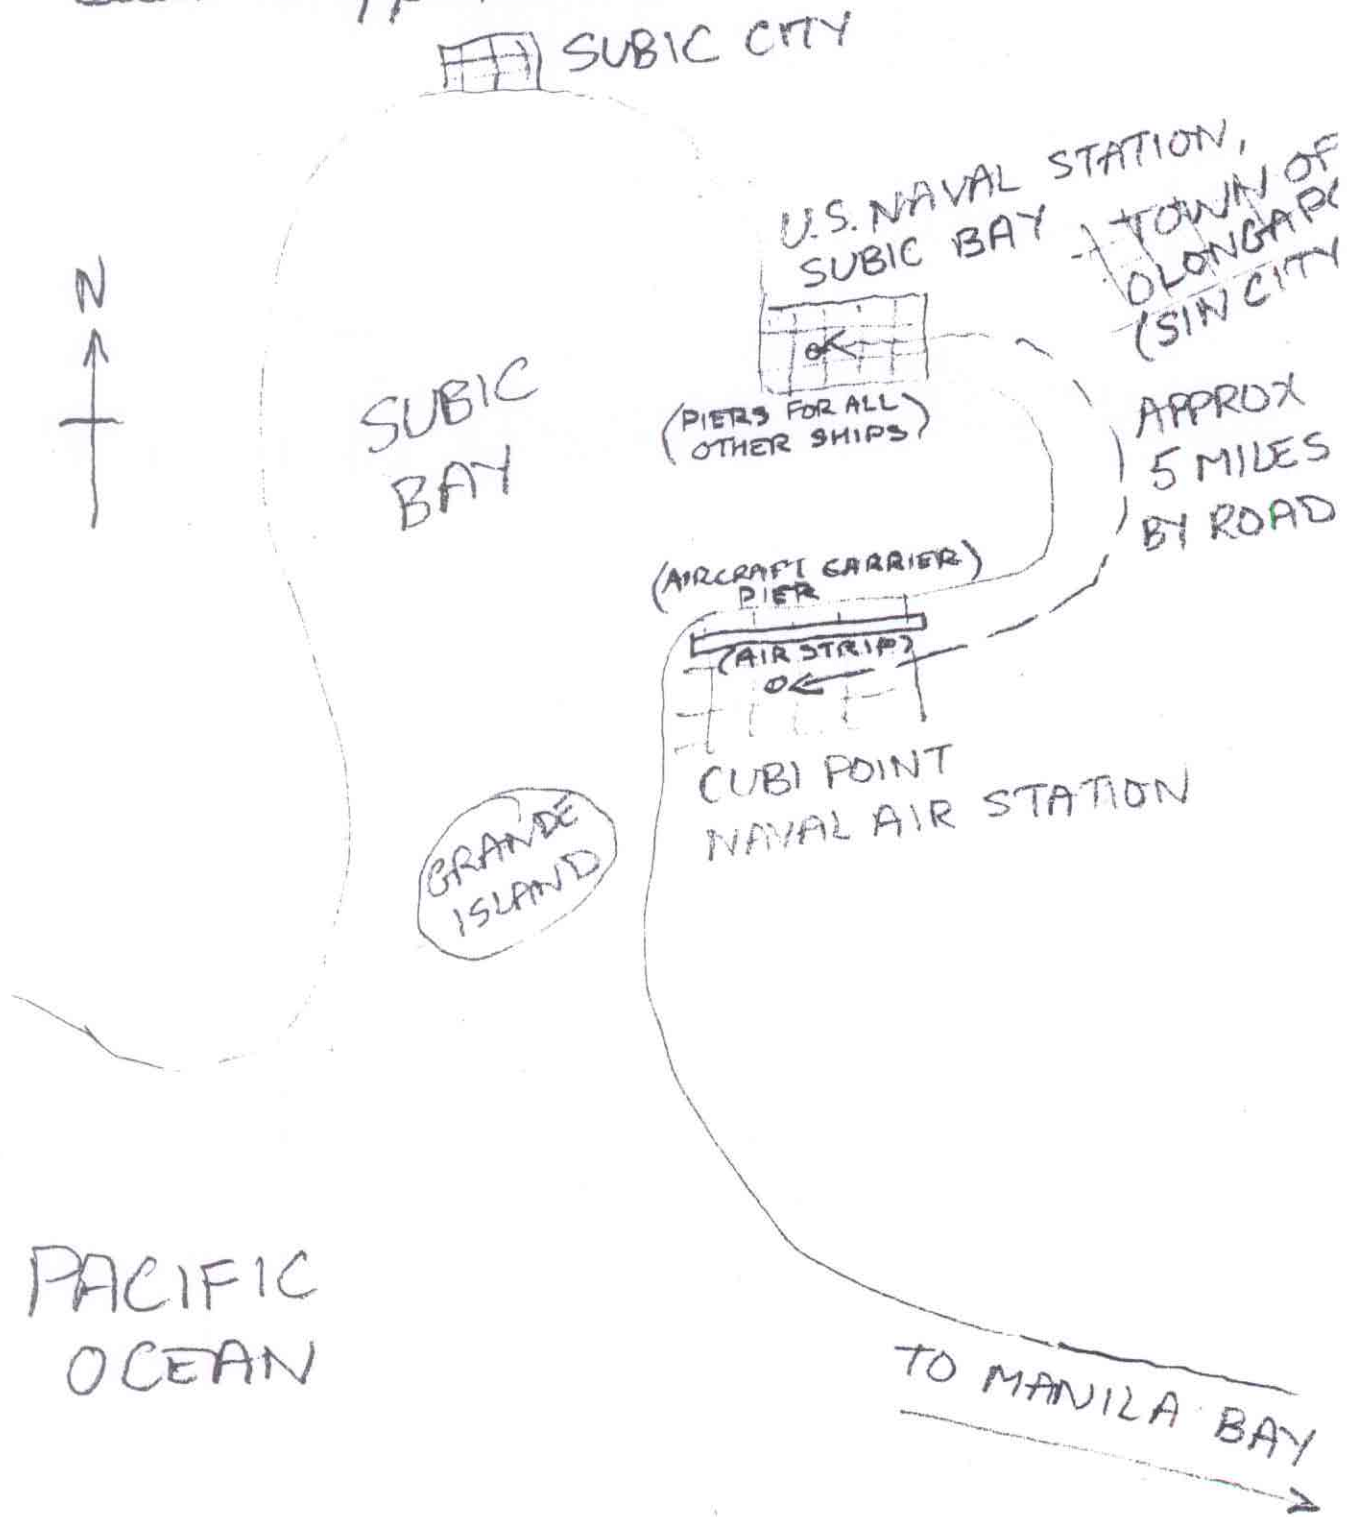 SUBIC CITY
U.S. NAVAL STATION,
SUBIC BAY
TOWN OF
(SIN CITY
N
SUBIC
BAY
(PIERS FOR ALL
OTHER SHIPS)
APPROX
5 MILES
BY ROAD
(AIRCRAFT CARRIER)
PIER
(AIR STRIP)
CUBI POINT
NAVAL AIR STATION
GRANDE
ISLAND
PACIFIC
OCEAN
TO MANILA BAY